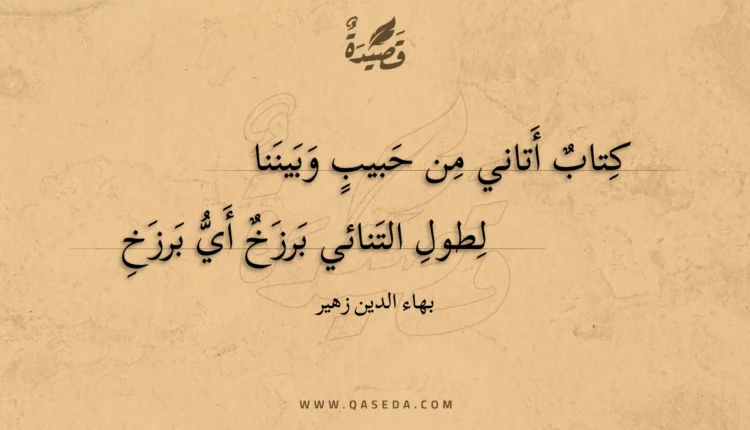 قَصِيْدَةٌ
كِتابٌ أَتاني مِن حَبيبٍ وَبَينَنا
لِطولِ التَنائي بَرزَخٌ أَيُّ بَرزَخِ
بهاء الدين زهير
WWW.QASEDA.COM